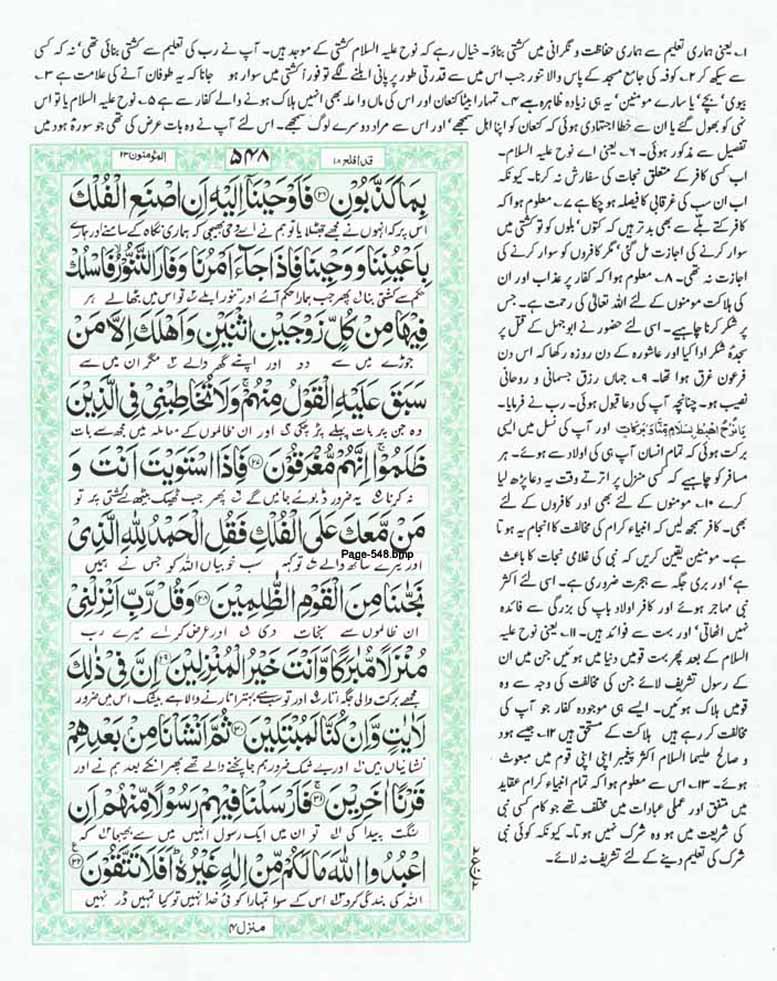 ۱؎ یعنی ہماری تعلیم سے ہماری حفاظت و نگرانی میں کشتی بناؤ۔ خیال رہے کہ نوح علیہ السلام کشتی کے موجد ہیں۔ آپ نے رب کی تعلیم سے کشتی بنائی تھی' نہ کہ کسی
سے سیکھ کر ۲؎ کوفہ کی جامع مسجد کے پاس والا تنور جب اس میں سے قدرتی طور پر پانی ابلنے لگے تو فوراً کشتی میں سوار ہو جانا کہ یہ طوفان آنے کی علامت ہے ۳؎
بیوی' بچے' یا سارے مومنین' یہ ہی زیادہ ظاہر ہے ۴؎ تمہارا بیٹا کنعان اور اس کی ماں واعلہ بھی انہیں ہلاک ہونے والے کفار سے ہے ۵؎ نوح علیہ السلام یا تو اس
نہی کو بھول گئے یا ان سے خطا اجتہادی ہوئی کہ کنعان کو اپنا اہل سمجھے' اور اس سے مراد دوسرے لوگ سمجھے۔ اس لئے آپ نے وہ بات عرض کی تھی جو سورۃ ہود میں
تفصیل سے مذکور ہوئی۔ ۶؎ یعنی اے نوح علیہ السلام۔
اب کسی کافر کے متعلق نجات کی سفارش نہ کرنا۔ کیونکہ
اب ان سب کی غرقابی کا فیصلہ ہو چکا ہے ۷؎ معلوم ہوا کہ
کافر کتے بلے سے بھی بدتر ہیں کہ کتوں' بلوں کو تو کشتی میں
سوار کرنے کی اجازت مل گئی' مگر کافروں کو سوار کرنے کی
اجازت نہ تھی۔ ۸؎ معلوم ہوا کہ کفار پر عذاب اور ان
کی ہلاکت مومنوں کے لئے اللہ تعالیٰ کی رحمت ہے۔ جس
پر شکر کرنا چاہیے۔ اسی لئے حضور نے ابوجہل کے قتل پر
سجدۂ شکر ادا کیا اور عاشورہ کے دن روزہ رکھا کہ اس دن
فرعون غرق ہوا تھا۔ ۹؎ جہاں رزق جسمانی و روحانی
نصیب ہو۔ چنانچہ آپ کی دعا قبول ہوئی۔ رب نے فرمایا۔
یٰنُوْحُ اهْبِطْ بِسَلَامٍ مِّنَّا وَبَرَكَاتٍ اور آپ کی نسل میں ایسی
برکت ہوئی کہ تمام انسان آپ ہی کی اولاد سے ہوئے۔ ہر
مسافر کو چاہیے کہ کسی منزل پر اترتے وقت یہ دعا پڑھ لیا
کرے ۱۰؎ مومنوں کے لئے بھی اور کافروں کے لئے
بھی۔ کافر سمجھ لیں کہ انبیاء کرام کی مخالفت کا انجام یہ ہوتا
ہے۔ مومنین یقین کریں کہ نبی کی غلامی نجات کا باعث
ہے' اور بری جگہ سے ہجرت ضروری ہے۔ اسی لئے اکثر
نبی مہاجر ہوئے اور کافر اولاد باپ کی بزرگی سے فائدہ
نہیں اٹھاتی' اور بہت سے فوائد ہیں۔ ۱۱؎ یعنی نوح علیہ
السلام کے بعد پھر بہت قومیں دنیا میں ہوئیں جن میں ان
کے رسول تشریف لائے جن کی مخالفت کی وجہ سے وہ
قومیں ہلاک ہوئیں۔ ایسے ہی موجودہ کفار جو آپ کی
مخالفت کر رہے ہیں ہلاکت کے مستحق ہیں ۱۲؎ جیسے ہود
و صالح علیہما السلام اکثر پیغمبر اپنی اپنی قوم میں مبعوث
ہوئے۔ ۱۳؎ اس سے معلوم ہوا کہ تمام انبیاء کرام عقائد
میں متفق اور عملی عبادات میں مختلف تھے جو کام کسی نبی
کی شریعت میں ہو وہ شرک نہیں ہوتا۔ کیونکہ کوئی نبی
شرک کی تعلیم دینے کے لئے تشریف نہ لائے۔
قد افلح ۱۸ ۵۴۸ المؤمنون ۲۳
بِمَا كَذَّبُوْنِ ۝۲۶ فَاَوْحَيْنَاۤ اِلَيْهِ اَنِ اصْنَعِ الْفُلْكَ
اس پر کہ انہوں نے مجھے جھٹلایا تو ہم نے اسے وحی بھیجی کہ ہماری نگاہ کے سامنے اور ہمارے
بِاَعْيُنِنَا وَوَحْيِنَا فَاِذَا جَآءَ اَمْرُنَا وَفَارَ التَّنُّوْرُ فَاسْلُكْ
حکم سے کشتی بنا پھر جب ہمارا حکم آئے اور تنور ابلے تو اس میں بٹھا لے ہر
فِيْهَا مِنْ كُلٍّ زَوْجَيْنِ اثْنَيْنِ وَاَهْلَكَ اِلَّا مَنْ
جوڑے میں سے دو اور اپنے گھر والے مگر ان میں سے
سَبَقَ عَلَيْهِ الْقَوْلُ مِنْهُمْ ۚ وَلَا تُخَاطِبْنِيْ فِي الَّذِيْنَ
وہ جن پر بات پہلے پڑ چکی اور ان ظالموں کے معاملہ میں مجھ سے بات
ظَلَمُوْا ۚ اِنَّهُمْ مُّغْرَقُوْنَ ۝۲۷ فَاِذَا اسْتَوَيْتَ اَنْتَ وَ
نہ کرنا یہ ضرور ڈبوئے جائیں گے پھر جب ٹھیک بیٹھ لے کشتی پر تو
مَنْ مَّعَكَ عَلَى الْفُلْكِ فَقُلِ الْحَمْدُ لِلّٰهِ الَّذِيْ
Page-548.bmp
اور تیرے ساتھ والے تو کہہ سب خوبیاں اللہ کو جس نے ہمیں
نَجّٰىنَا مِنَ الْقَوْمِ الظّٰلِمِيْنَ ۝۲۸ وَقُلْ رَّبِّ اَنْزِلْنِيْ
ان ظالموں سے نجات دی اور عرض کر اے میرے رب
مُنْزَلًا مُّبٰرَكًا وَّاَنْتَ خَيْرُ الْمُنْزِلِيْنَ ۝۲۹ اِنَّ فِيْ ذٰلِكَ
مجھے برکت والی جگہ اتار اور تو سب سے بہتر اتارنے والا ہے بیشک اس میں ضرور
لَاٰيٰتٍ وَّاِنْ كُنَّا لَمُبْتَلِيْنَ ۝۳۰ ثُمَّ اَنْشَاْنَا مِنْۢ بَعْدِهِمْ
نشانیاں ہیں اور بے شک ضرور ہم جانچنے والے تھے پھر ان کے بعد ہم نے اور
قَرْنًا اٰخَرِيْنَ ۝۳۱ فَاَرْسَلْنَا فِيْهِمْ رَسُوْلًا مِّنْهُمْ اَنِ
سنگت پیدا کی تو ان میں ایک رسول انہیں میں سے بھیجا کہ
اعْبُدُوا اللّٰهَ مَا لَكُمْ مِّنْ اِلٰهٍ غَيْرُهٗ ؕ اَفَلَا تَتَّقُوْنَ ۝۳۲
اللہ کی بندگی کرو اس کے سوا تمہارا کوئی خدا نہیں تو کیا تمہیں ڈر نہیں
منزل ۴